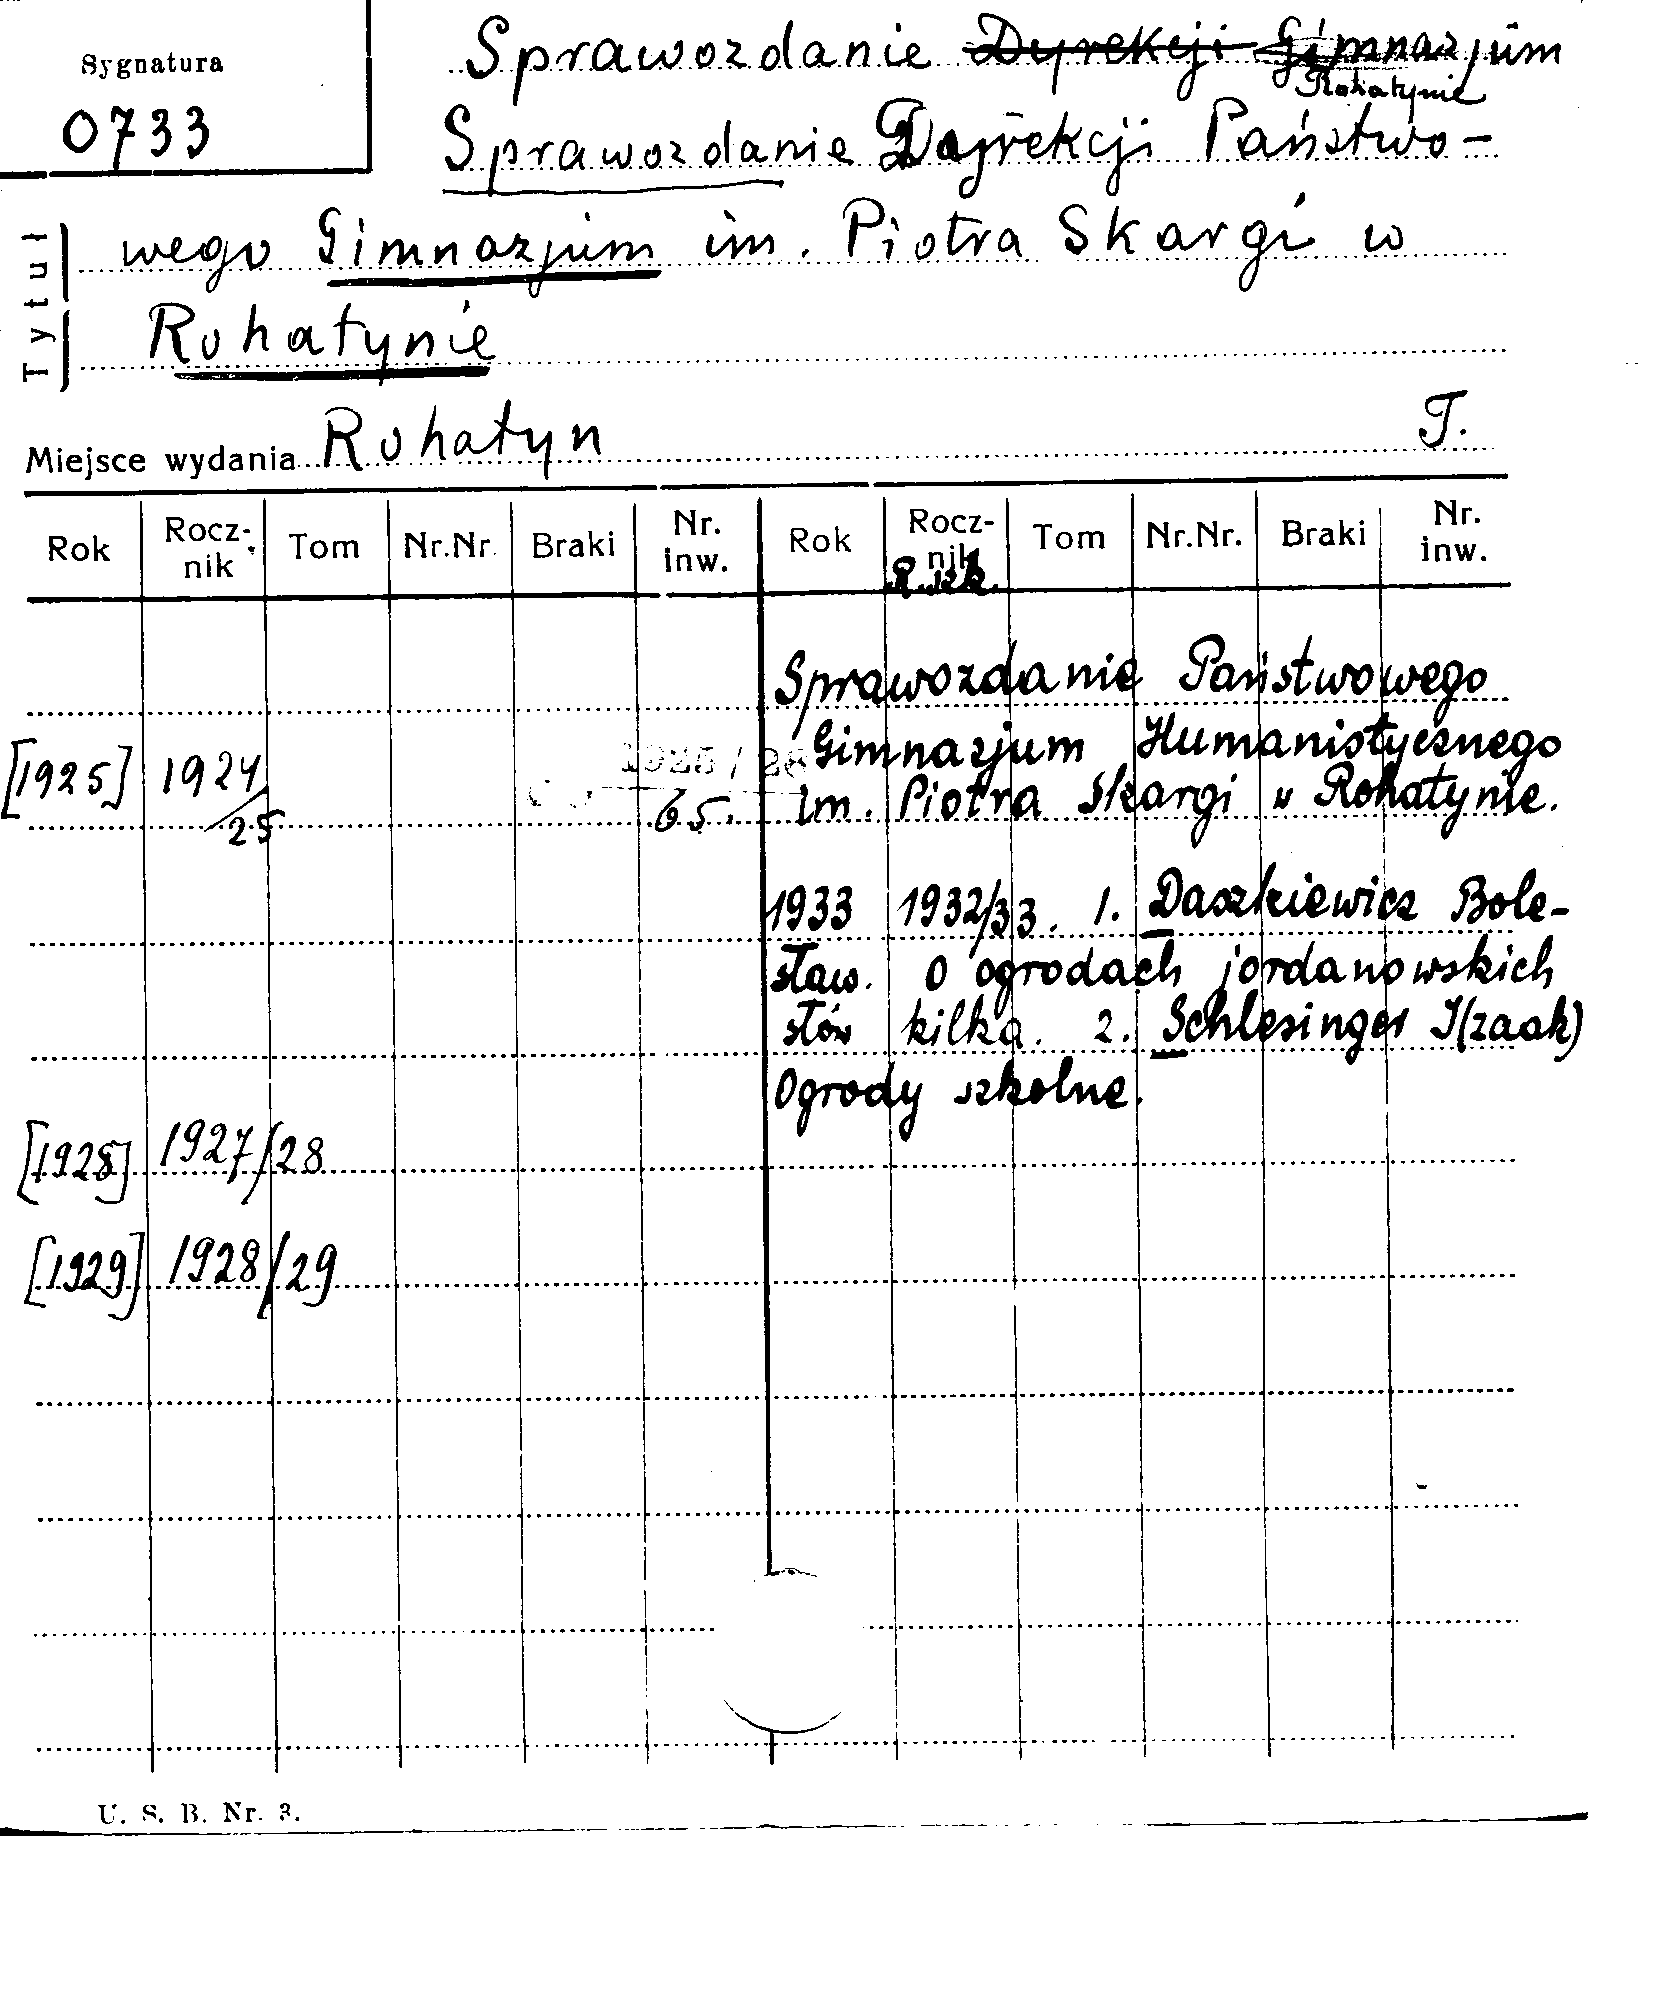 Sygnatura
0733
Sprawozdanie Dyrekcji Gimnazjum
Rohatynie
Sprawozdanie Dyrekcji Państwo-
Tytuł
wego Gimnazjum im. Piotra Skargi w
Rohatynie
Miejsce wydania Rohatyn T.
Rok Rocz-nik Tom Nr.Nr. Braki Nr. inw. Rok Rocz-nik Tom Nr.Nr. Braki Nr. inw.
R. szk.
Sprawozdanie Państwowego
[1925] 1924/25 1925/26 65. Gimnazjum Humanistycznego
im. Piotra Skargi w Rohatynie.
1933 1932/33. 1. Daszkiewicz Bole-
sław. O ogrodach jordanowskich
słów kilka. 2. Schlesinger I(zaak)
Ogrody szkolne.
[1928] 1927/28
[1929] 1928/29
U. S. B. Nr. 3.